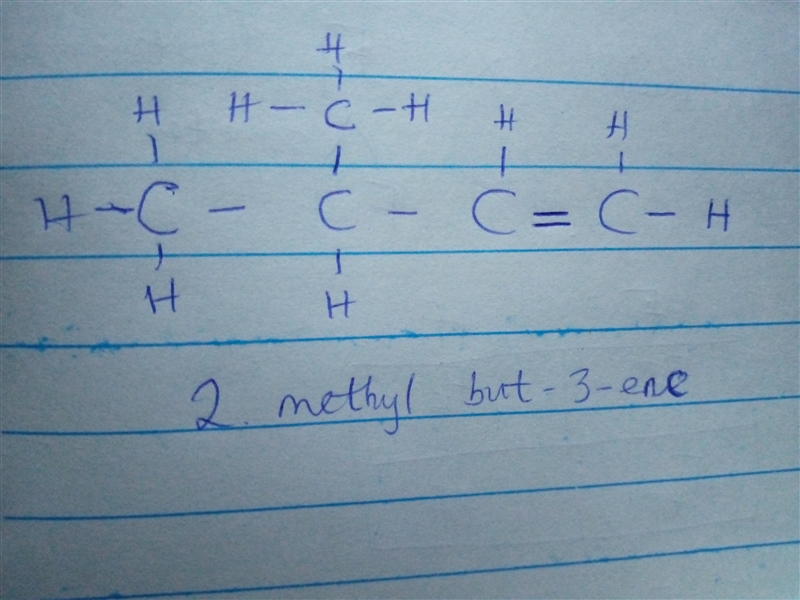 H
H H – C – H H H
H – C – C – C = C – H
H H
2. methyl but-3-ene